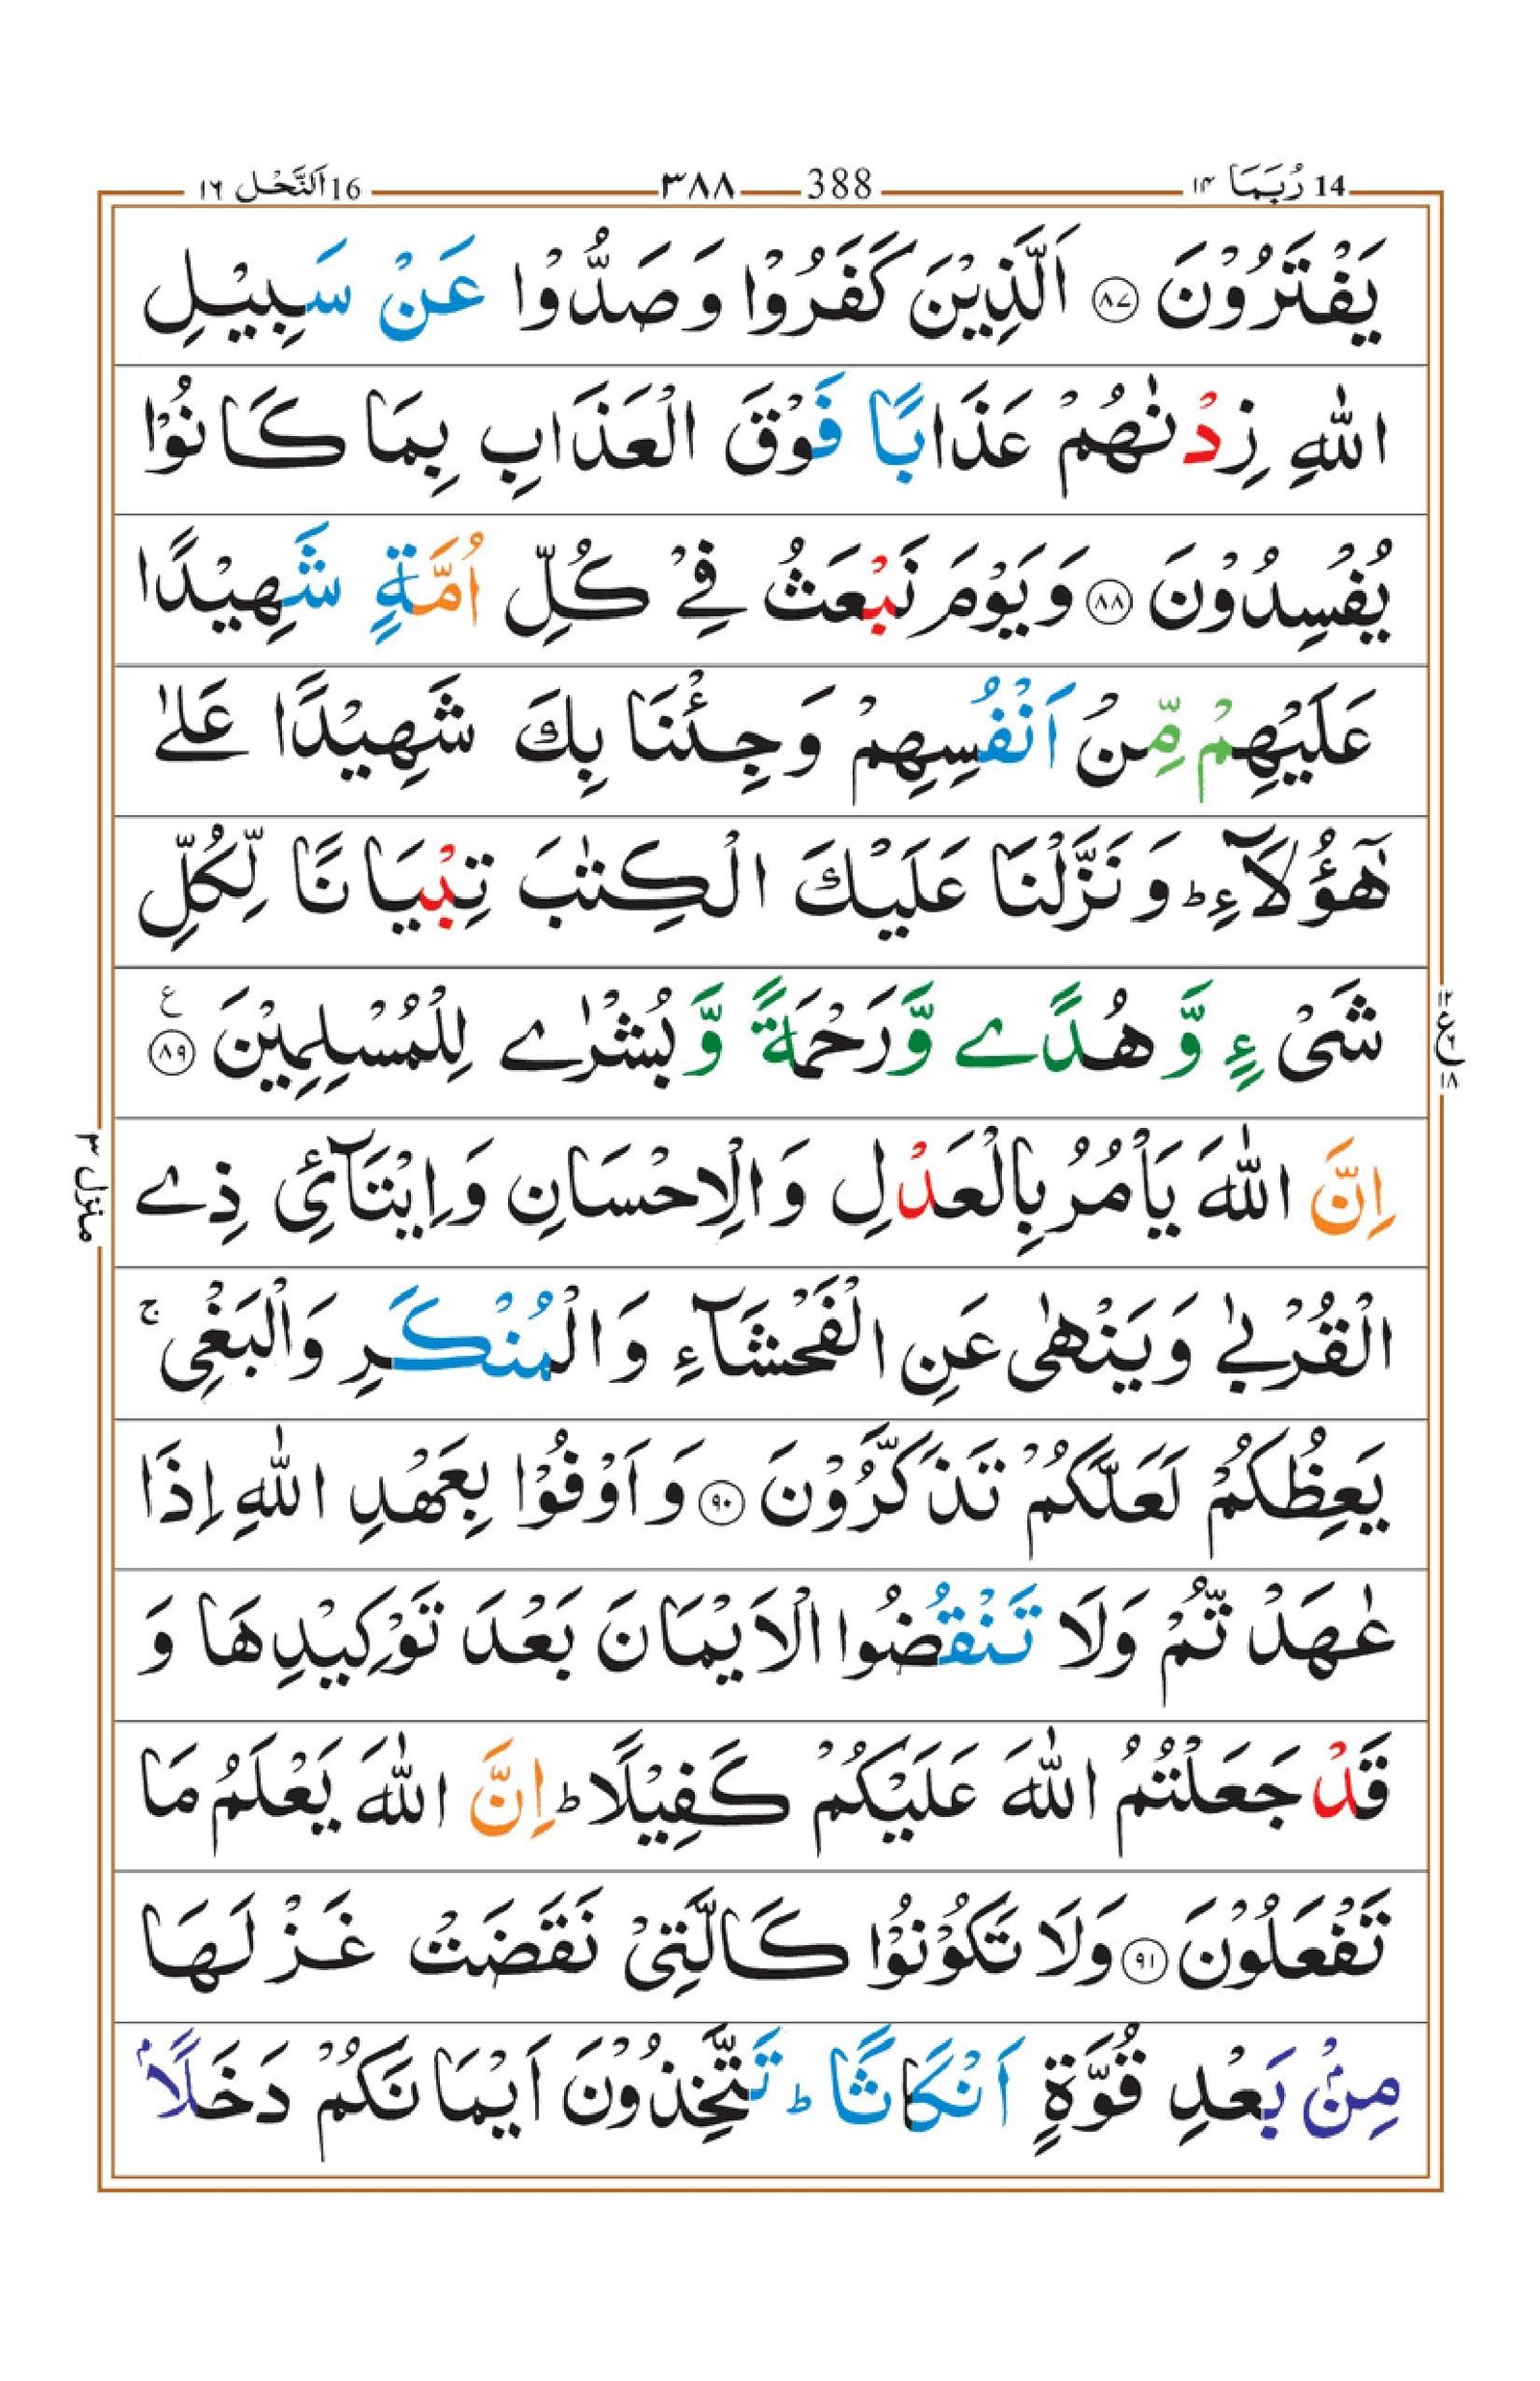 14 رُبَمَا ۱۴ 388 ۳۸۸ 16 اَلنَّحْل ۱۶
يَفْتَرُوْنَ ۝۸۷ اَلَّذِيْنَ كَفَرُوْا وَ صَدُّوْا عَنْ سَبِيْلِ
اللّٰهِ زِدْنٰهُمْ عَذَابًا فَوْقَ الْعَذَابِ بِمَا كَانُوْا
يُفْسِدُوْنَ ۝۸۸ وَ يَوْمَ نَبْعَثُ فِيْ كُلِّ اُمَّةٍ شَهِيْدًا
عَلَيْهِمْ مِّنْ اَنْفُسِهِمْ وَ جِئْنَا بِكَ شَهِيْدًا عَلٰى
هٰۤؤُلَآءِ ؕ وَ نَزَّلْنَا عَلَيْكَ الْكِتٰبَ تِبْيَانًا لِّكُلِّ
شَيْءٍ وَّ هُدًے وَّ رَحْمَةً وَّ بُشْرٰے لِلْمُسْلِمِيْنَ ۝۸۹ ع
۱۲ ع ۶ ۱۸
اِنَّ اللّٰهَ يَاْمُرُ بِالْعَدْلِ وَ الْاِحْسَانِ وَ اِيْتَآئِ ذِے
منزل ۳
الْقُرْبٰے وَ يَنْهٰى عَنِ الْفَحْشَآءِ وَ الْمُنْكَرِ وَ الْبَغْيِ ۚ
يَعِظُكُمْ لَعَلَّكُمْ تَذَكَّرُوْنَ ۝۹۰ وَ اَوْفُوْا بِعَهْدِ اللّٰهِ اِذَا
عٰهَدْتُّمْ وَلَا تَنْقُضُوا الْاَيْمَانَ بَعْدَ تَوْكِيْدِهَا وَ
قَدْ جَعَلْتُمُ اللّٰهَ عَلَيْكُمْ كَفِيْلًا ؕ اِنَّ اللّٰهَ يَعْلَمُ مَا
تَفْعَلُوْنَ ۝۹۱ وَلَا تَكُوْنُوْا كَالَّتِيْ نَقَضَتْ غَزْلَهَا
مِنْۢ بَعْدِ قُوَّةٍ اَنْكَاثًا ؕ تَتَّخِذُوْنَ اَيْمَانَكُمْ دَخَلًاۢ